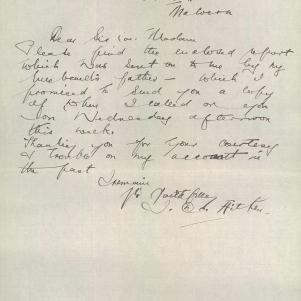 Malvern
Dear Sir or Madam
Please find the enclosed report
which was sent on to me by my
husband's father - which I
promised to send you a copy
of when I called on you
on Wednesday afternoon
this week.
Thanking you for your courtesy
& trouble on my account in
the past
I remain
Yrs Faithfully
Aitken